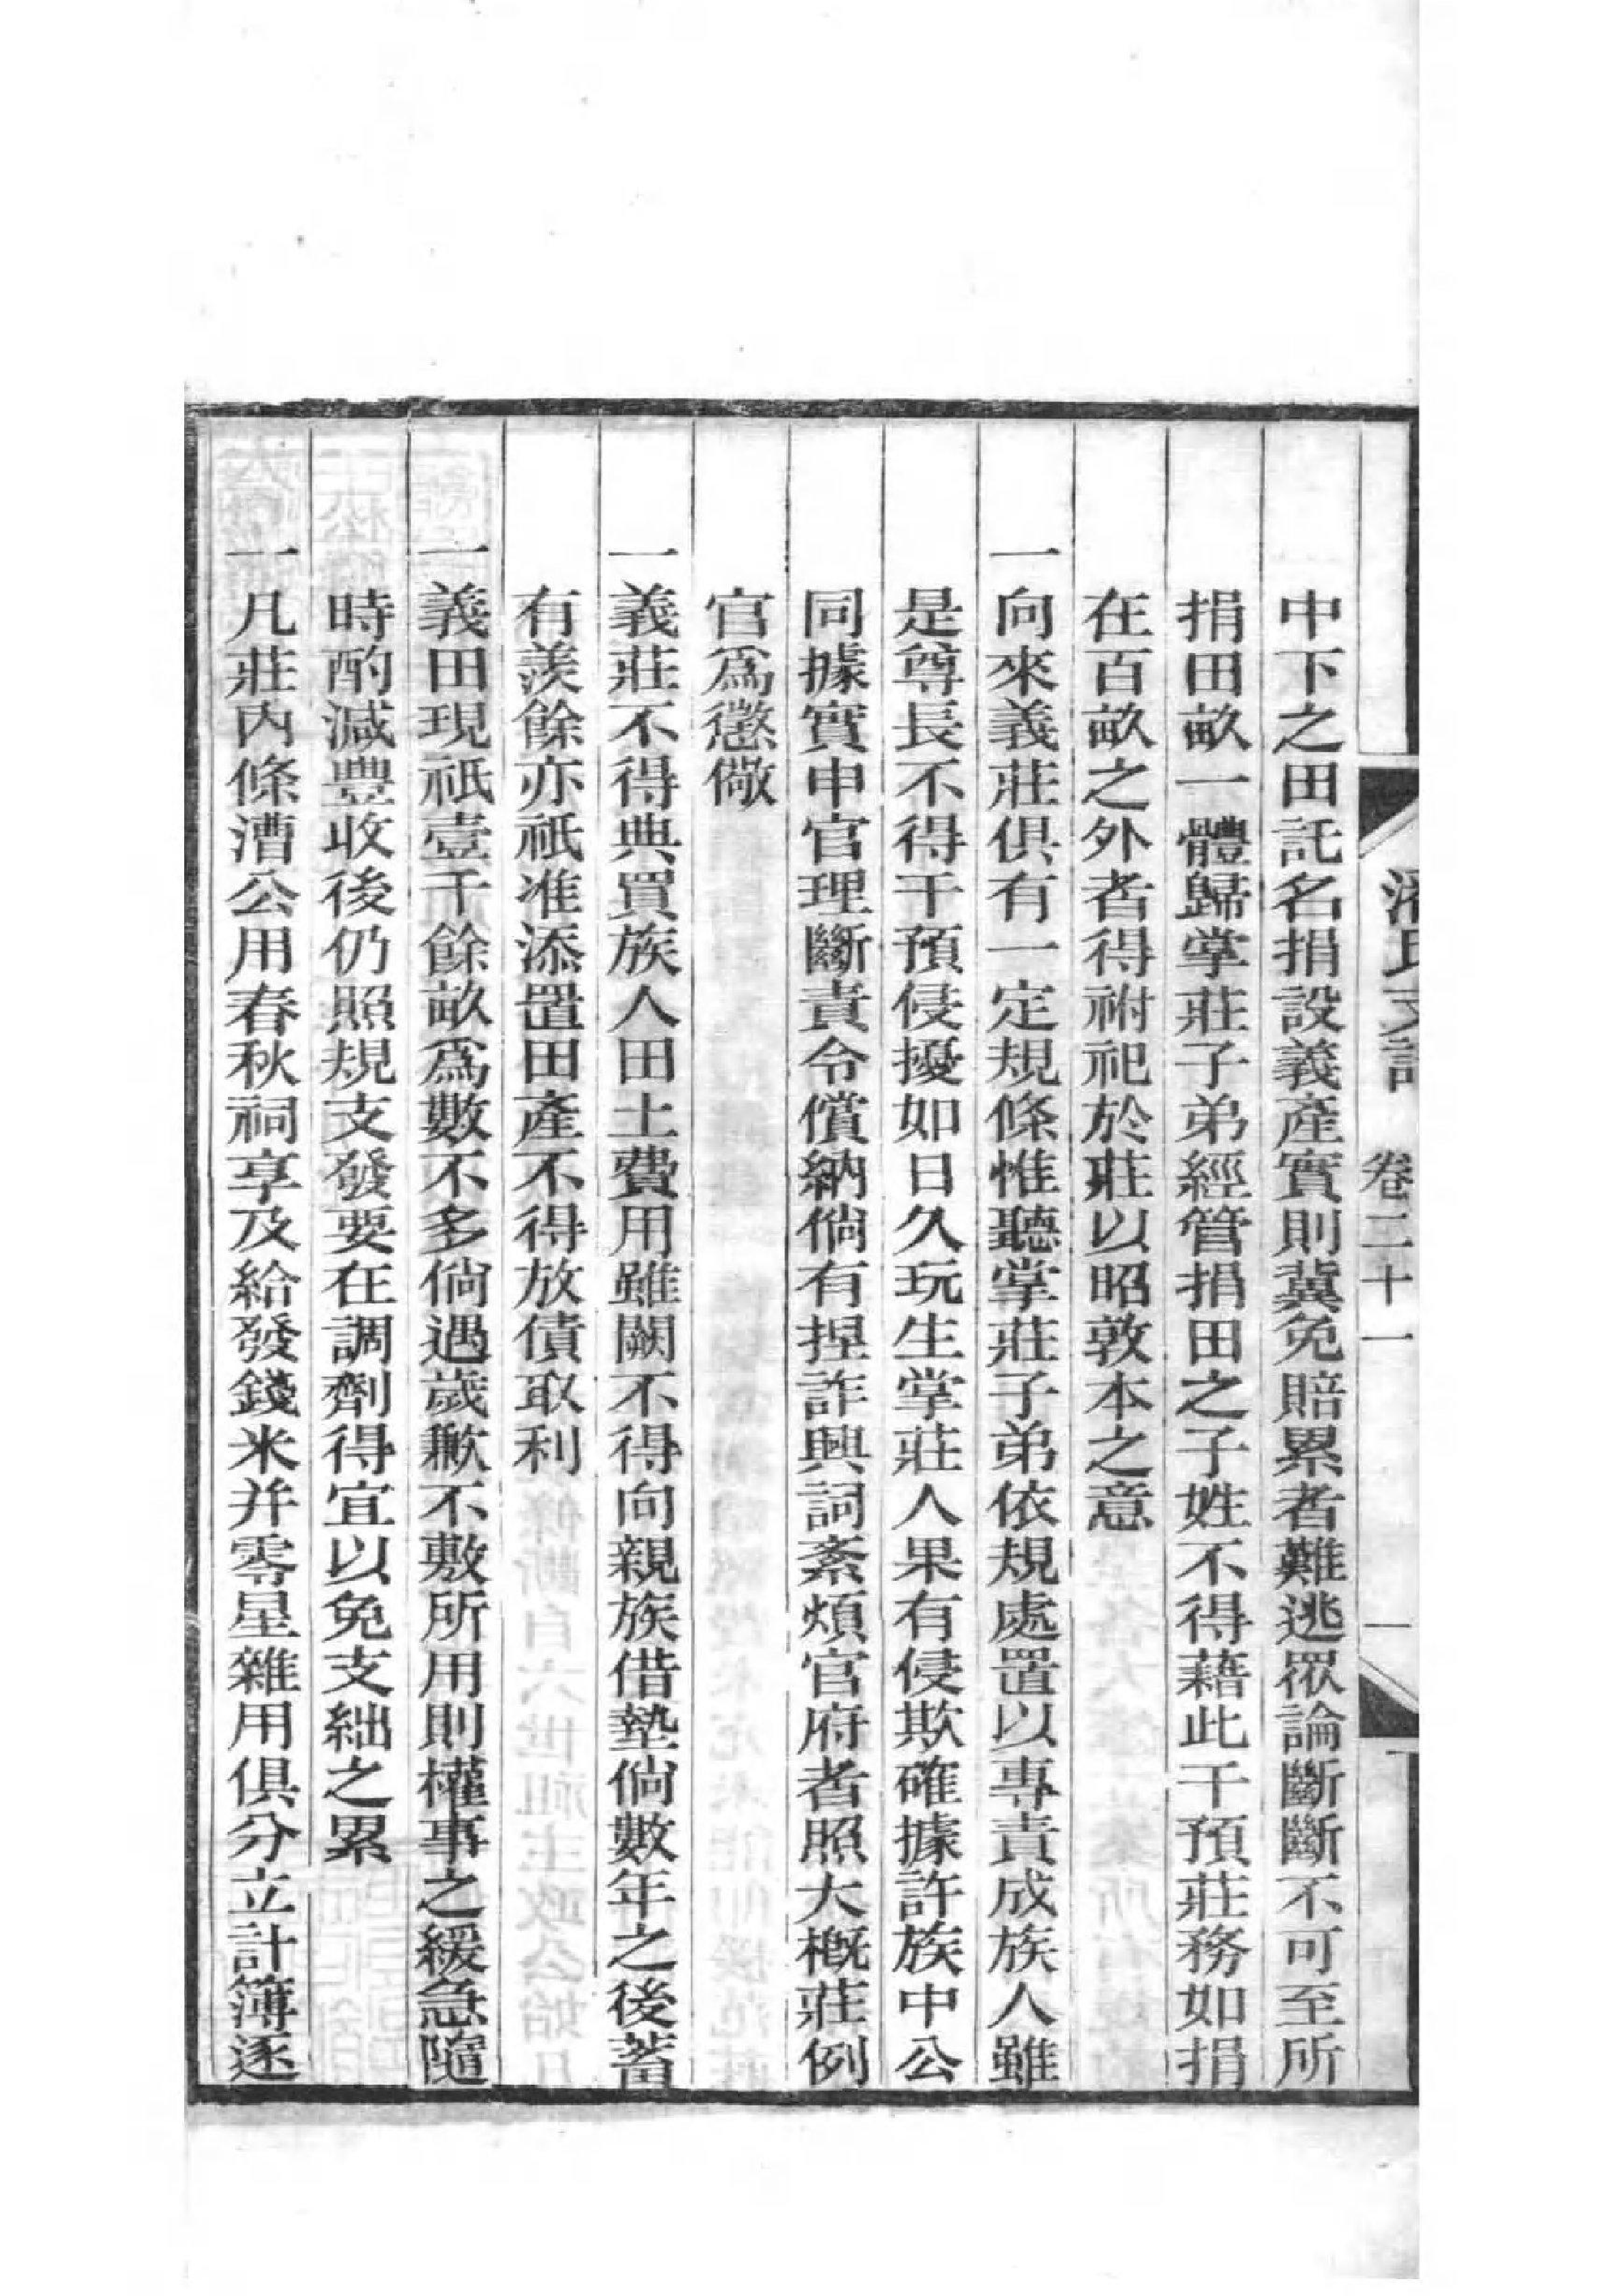 卷二十一
一
中下之田託名捐設義產實則冀免賠累者難逃眾論斷斷不可至所
捐田畝一體歸掌莊子弟經管捐田之子姓不得藉此干預莊務如捐
在百畝之外者得祔祀於莊以昭敦本之意
一向來義莊俱有一定規條惟聽掌莊子弟依規處置以專責成族人雖
是尊長不得干預侵擾如日久玩生掌莊人果有侵欺確據許族中公
同據實申官理斷責令償納倘有捏詐興詞紊煩官府者照大概莊例
官爲懲儆
一義莊不得典買族人田土費用雖闕不得向親族借墊倘數年之後蓄
有羨餘亦祇准添置田產不得放債取利
一義田現祇壹千餘畝爲數不多倘遇歲歉不敷所用則權事之緩急隨
時酌減豐收後仍照規支發要在調劑得宜以免支絀之累
一凡莊內條漕公用春秋祠享及給發錢米并零星雜用俱分立計簿逐